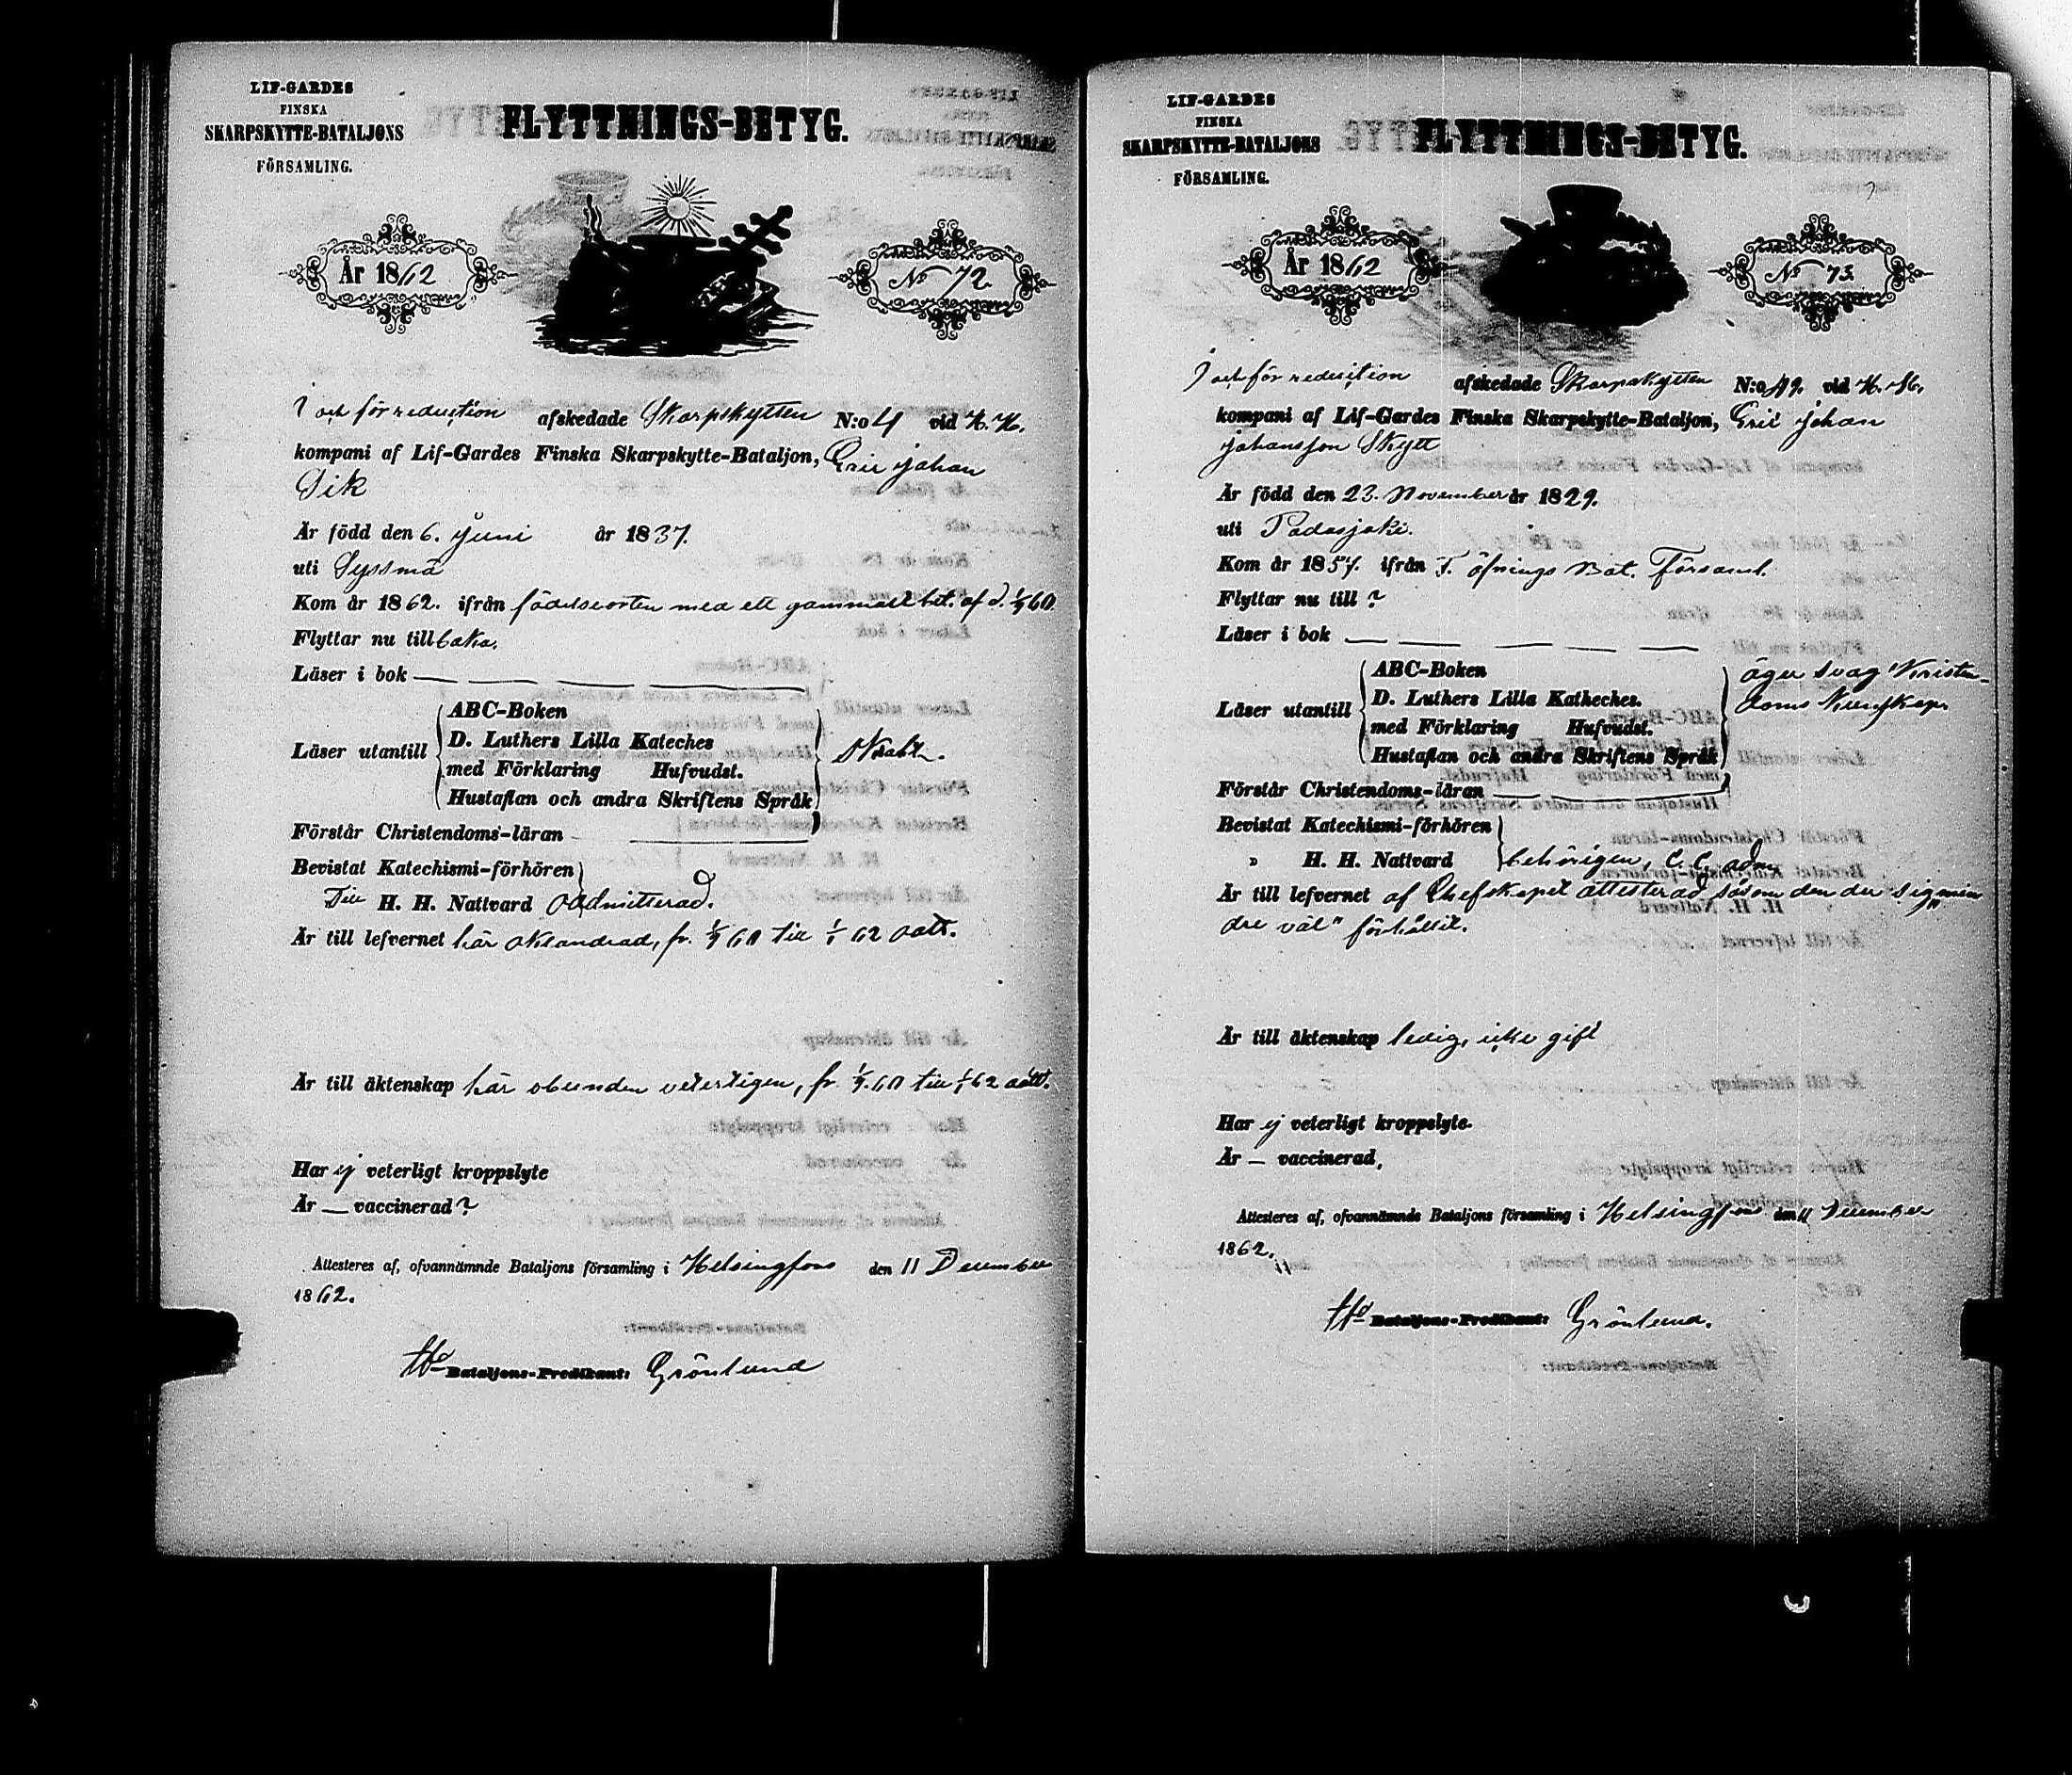 LIF-GARDES
FINSKA
SKARPSKYTTE-BATALJONS
FÖRSAMLING.
FLYTTNINGS-BETYG.
År 1862
No 72.
I och för reduction afskedade Skarpskytten N:o 4 vid H. H.
kompani af Lif-Gardes Finska Skarpskytte-Bataljon, Eric Johan
Sik
Är född den 6. Juni år 1837.
uti Syssmä
Kom år 1862. ifrån födelseorten med ett gammalt bet. af d. 1/9 60.
Flyttar nu tillbaka.
Läser i bok
Läser utantill
ABC-Boken
D. Luthers Lilla Kateches
med Förklaring Hufvudst.
Hustaflan och andra Skriftens Språk
Förstår Christendoms-läran
Bevistat Katechismi-förhören
Till H. H. Nattvard admitterad.
Är till lefvernet här oklandrad, fr. 1/9 60 till 1/1 62
Är till äktenskap här obunden veterligen, fr. 1/9 60 till 1/1 62
Har ej veterligt kroppslyte
Är — vaccinerad?
Attesteres af, ofvannämnde Bataljons församling i Helsingfors den 11 December
1862.
Bataljons-Predikant: Grönlund
LIF-GARDES
FINSKA
SKARPSKYTTE-BATALJONS
FÖRSAMLING.
FLYTTNINGS-BETYG.
År 1862
No 73.
I och för reduction afskedade Skarpskytten N:o 49. vid
kompani af Lif-Gardes Finska Skarpskytte-Bataljon, Eric Johan
Johansson Skytt
Är född den 23. November år 1829.
uti Padasjoki.
Kom år 1857. ifrån F. öfnings Bat. Församl.
Flyttar nu till?
Läser i bok
Läser utantill
ABC-Boken
D. Luthers Lilla Katheches.
med Förklaring Hufvudst.
Hustaflan och andra Skriftens Språk
äger svag Kristen-
doms Kunskap
Förstår Christendoms-läran
Bevistat Katechismi-förhören
» H. H. Nattvard behörigen, C. C. adm.
Är till lefvernet af Chefskapet attesterad såsom den der sig "min
dre väl" förhållit.
Är till äktenskap ledig, icke gift
Har ej veterligt kroppslyte.
Är — vaccinerad,
Attesteres af, ofvannämnde Bataljons församling i Helsingfors den 11 December
1862.
Bataljons-Predikant: Grönlund.